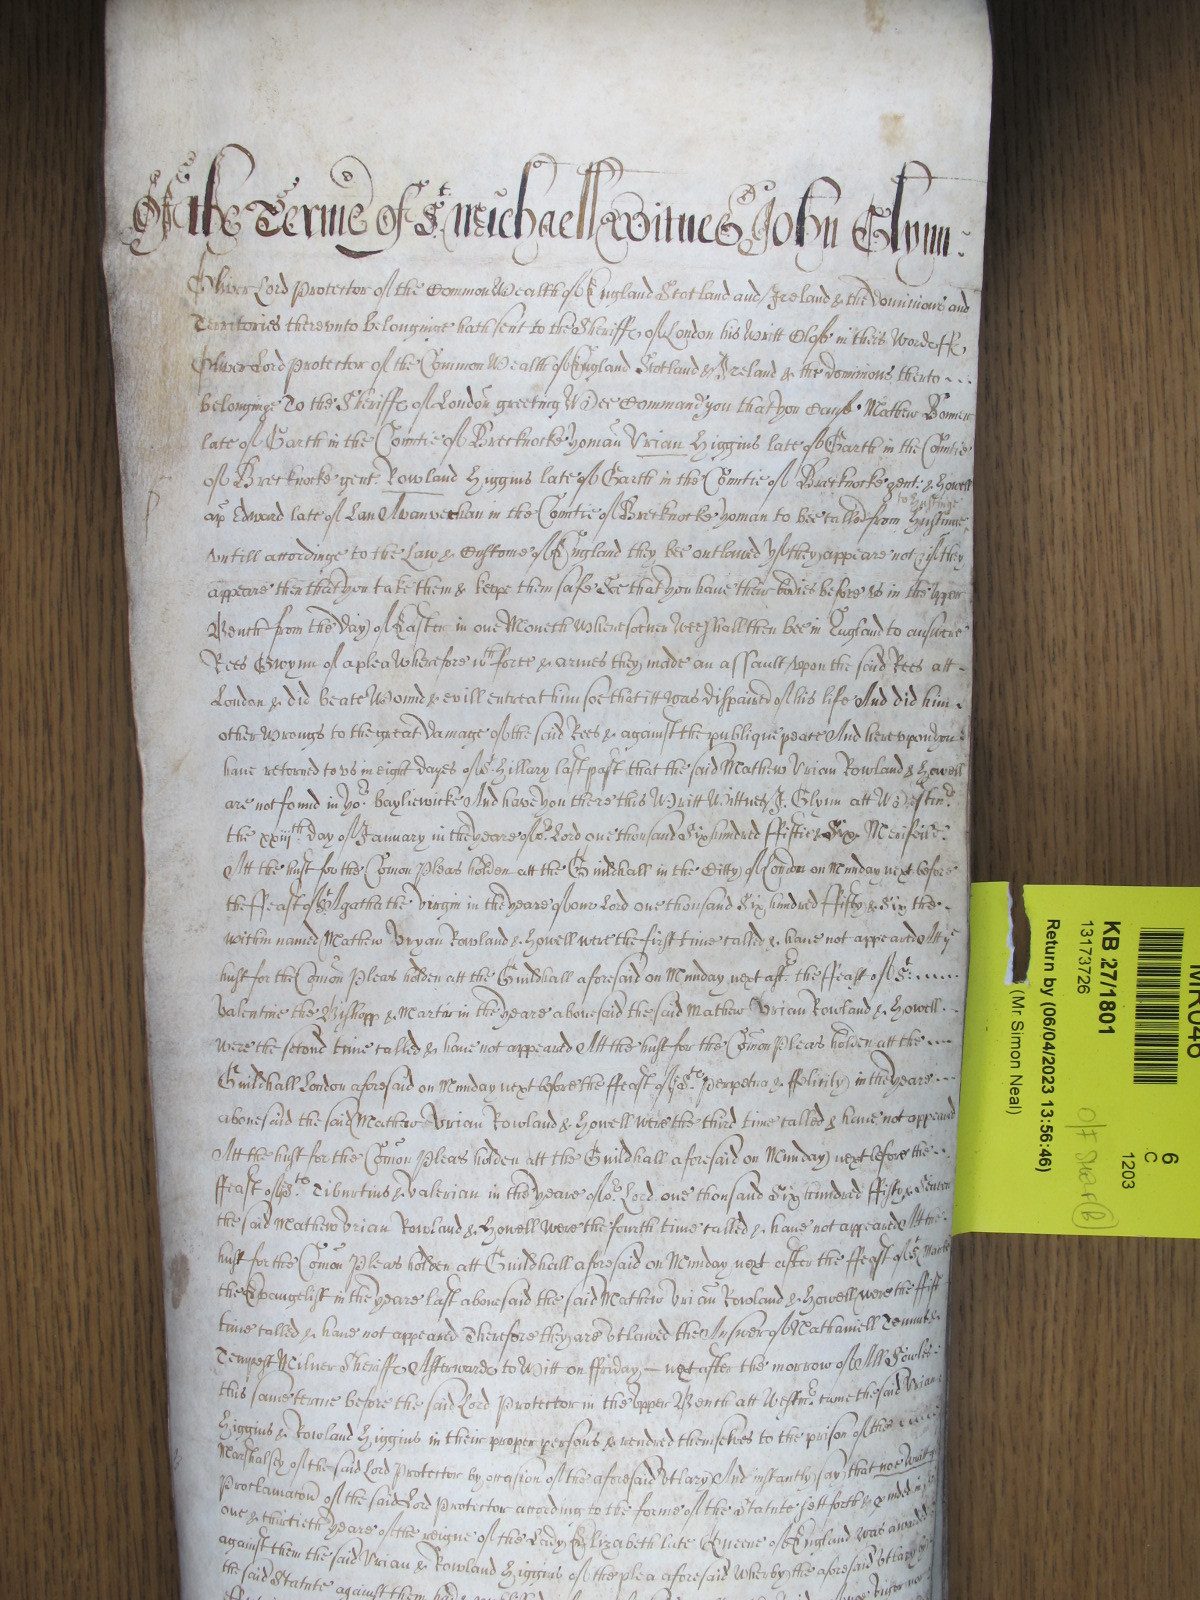 Of the Terme of St Michaell Witnes John Glynn:
Oliver Lord Protector of the Common Wealth of England Scotland and Ireland & the Dominions and
Territories thereunto belonginge hath sent to the Sheriffs of London his Writt Close in theis Words ss
Oliver Lord Protector of the Common Wealth of England Scotland & Ireland & the Dominions therto ...
belonginge To the Sheriffs of London greeting Wee Command you that you cause Mathew
late of Garth in the Countie of Brecknocke yoman Vrian Higgins late of Garth in the Countie
of Brecknocke gent. Rowland Higgins late of Garth in the Countie of Brecknocke gent: & Howell
ap Edward late of in the Countie of Brecknocke yoman to bee called from Hustinge
to Hustinge
vntill accordinge to the Law & Custome of England they bee outlawed yf they appeare not & if they
appeare then that you take them & keepe them safe Soe that you haue their bodies before vs in the vpper
Bench from the day of Easter in one Moneth Wheresoever wee shall then bee in England to answere
Rees Gwynn of a plea Wherefore wth force & armes they made an assault vpon the said Rees att
London & did beate Wound & evill entreat him soe that itt was dispaired of his life And did him
other Wrongs to the great damage of the said Rees & against the publique peace And herevpon you
haue retorned to vs in eight dayes of St Hillary last past that the said Mathew Vrian Rowland & Howell
are not found in yor bayliwicke And haue you there this Writt Wittnes J. Glynn att Westmr
the xxiijth day of January in the yeare of or Lord one thousand Six hundred ffiftie & Six
Att the hust for the Comon Pleas holden att the Guildhall in the Citty of London on Munday next before
the ffeast of St Agatha the virgin in the yeare of our Lord one thousand Six hundred ffifty & Six the
within named Mathew Vryan Rowland & Howell were the first time called & haue not appeared Att ye
hust for the Comon Pleas holden att the Guildhall aforesaid on Munday next aftr the ffeast of St ....
Valentine the Bishopp & Martir in the yeare abouesaid the said Mathew Vrian Rowland & Howell
were the second time called & haue not appeared Att the hust for the Comon Pleas holden att the ...
Guildhall London aforesaid on Munday next before the ffeast of Sts Perpetua & ffelicity in the yeare ...
abouesaid the said Mathew Vrian Rowland & Howell were the third time called & haue not appeared
Att the hust for the Comon Pleas holden att the Guildhall aforesaid on Munday next before the ..
ffeast of Sts Tiburtius & Valerian in the yeare of or Lord one thousand Six hundred ffifty & Seaven
the said Mathew Vrian Rowland & Howell were the fourth time called & haue not appeared Att the
hust for the Comon Pleas holden att Guildhall aforesaid on Munday next after the ffeast of St Marke
the Evangelist in the yeare last abouesaid the said Mathew Vrian Rowland & Howell were the ffift
time called & haue not appeared Therefore they are vtlawed the Answer of Nathaniell Temms &
Tempest Milner Sheriffs Afterwards to Witt on ffriday — next after the morrow of All Soules
this same terme before the said Lord Protector in the vpper Bench att Westmr came the said Vrian
Higgins & Rowland Higgins in their proper persons & rendred themselves to the prison of the ....
Marshalsey of the said Lord Protector by occasion of the aforesaid vtlary And instantly say that not
Proclamacon of the said Lord Protector according to the forme of the Statute sett forth &
one & thirtieth yeare of the reigne of the Lady Elizabeth late Queene of England was awarded
against them the said Vrian & Rowland Higgins of the plea aforesaid wherby the aforesaid vtlary by
the said Statute against them had &
MR046
KB 27/1801
13173726
Return by (06/04/2023 13:56:46)
(Mr Simon Neal)
6
C
1203